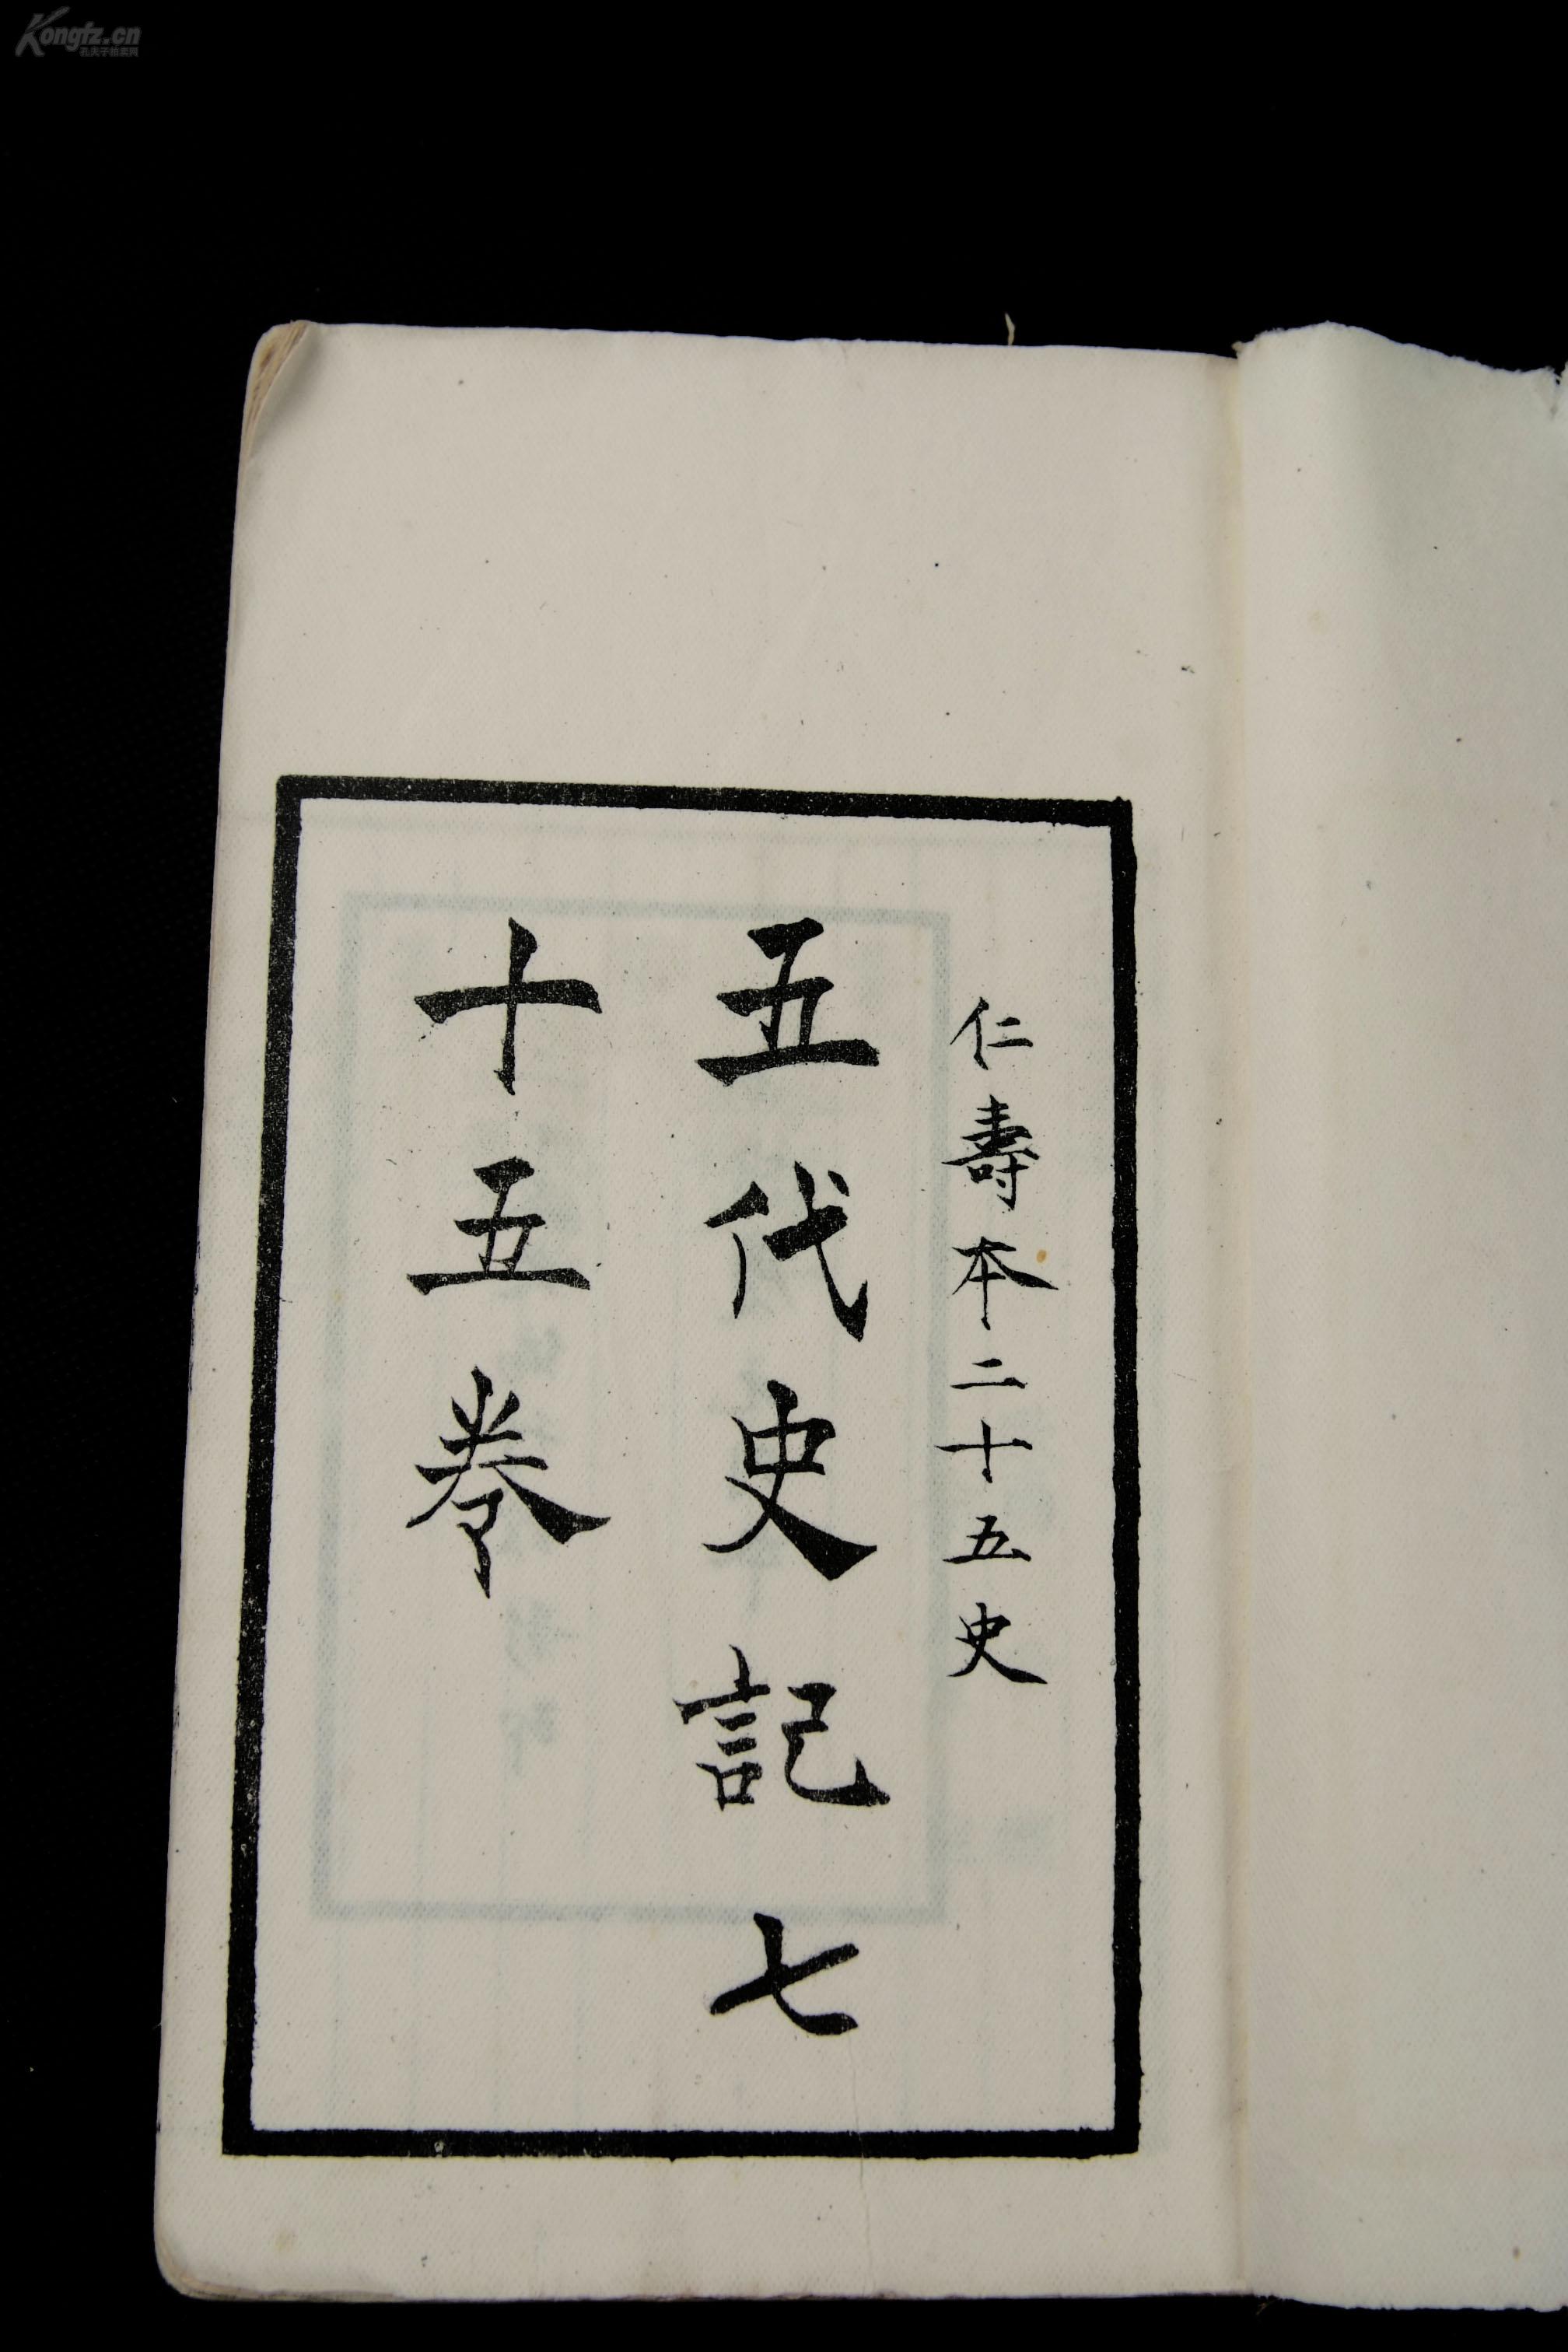 Kongfz.cn
孔夫子拍卖网
仁壽本二十五史
五代史記七
十五卷